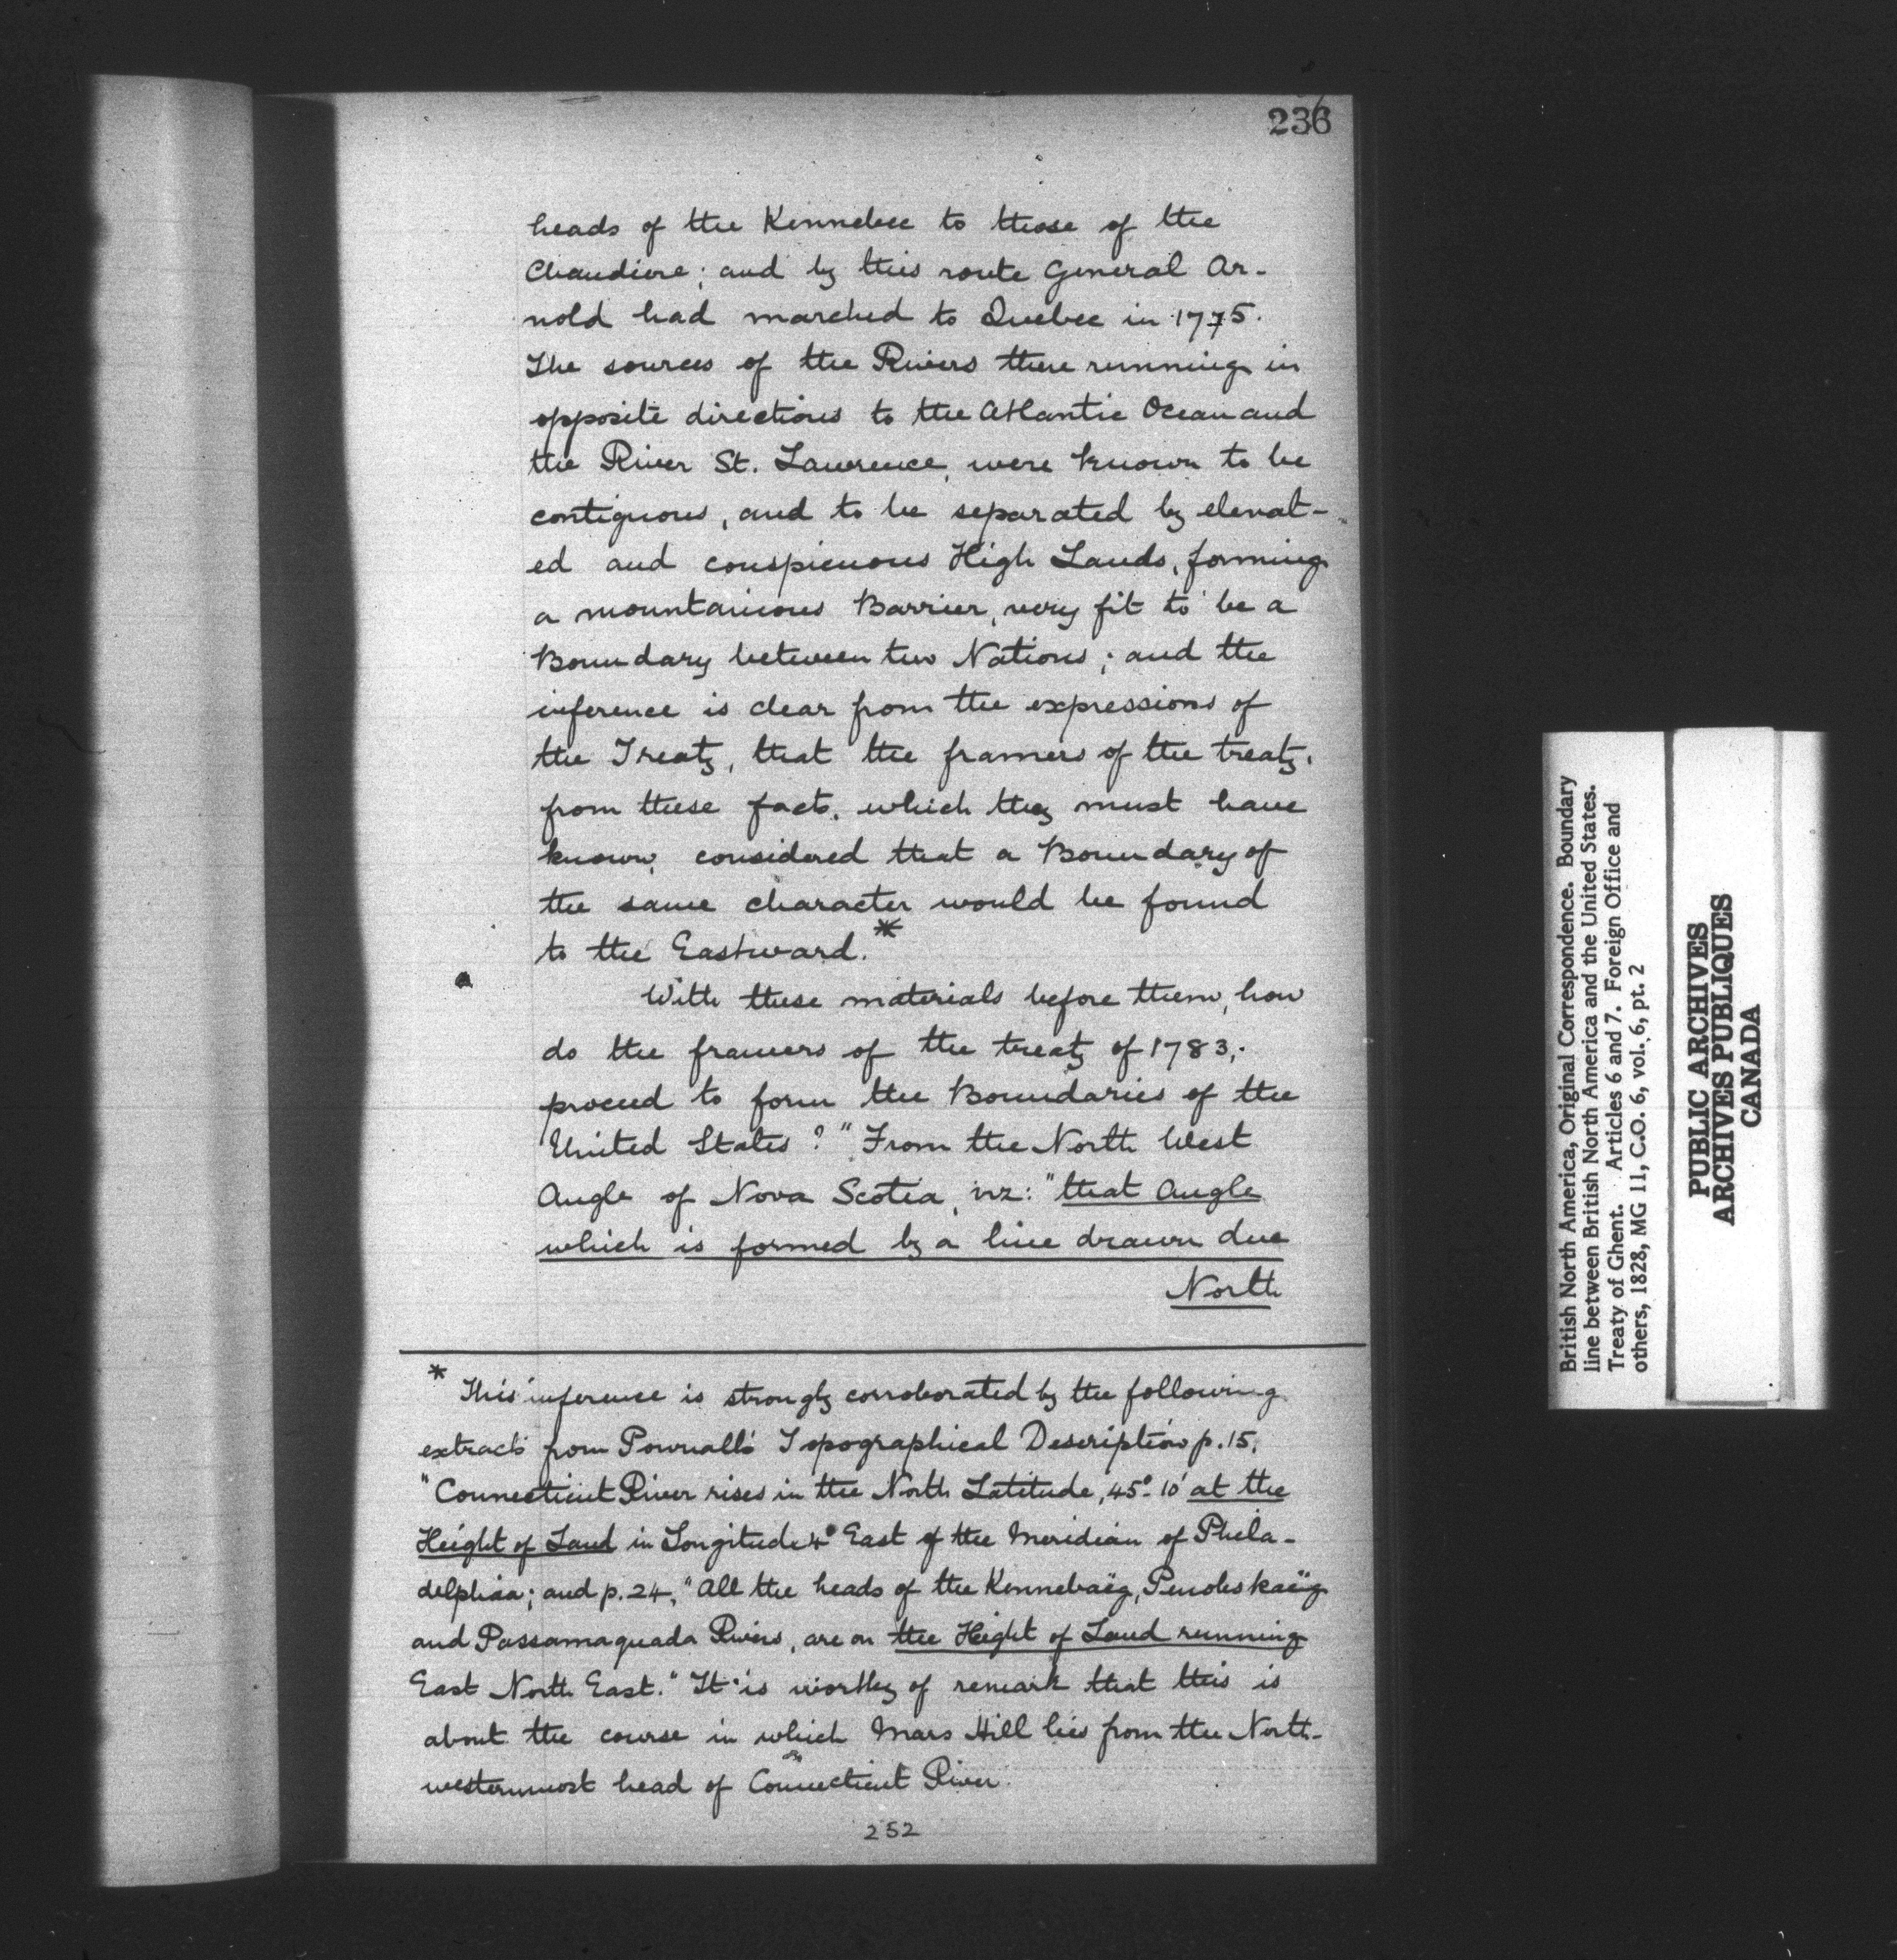 236
heads of the Kennebec to those of the
Chaudiere; and by this route General Ar-
nold had marched to Quebec in 1775.
The sources of the Rivers there running in
opposite directions to the Atlantic Ocean and
the River St. Lawrence, were known to be
contiguous, and to be separated by elevat-
ed and conspicuous High Lands, forming
a mountainous Barrier, very fit to be a
Boundary between two Nations; and the
inference is clear from the expressions of
the Treaty, that the framers of the treaty,
from these facts, which they must have
known, considered that a Boundary of
the same character would be found
to the Eastward.*
With these materials before them, how
do the framers of the treaty of 1783,
proceed to form the Boundaries of the
United States? "From the North West
Angle of Nova Scotia, viz: "that Angle
which is formed by a line drawn due
North
* This inference is strongly corroborated by the following
extracts from Pownall's Topographical Description p. 15,
"Connecticut River rises in the North Latitude, 45° 10' at the
Height of Land in Longitude 4° East of the Meridian of Phila-
delphia; and p. 24, "All the heads of the Kennebaëg, Penobskaëg
and Passamaquada Rivers, are on the Height of Land running
East North East." It is worthy of remark that this is
about the course in which Mars Hill lies from the North-
westernmost head of Connecticut River.
252
British North America, Original Correspondence. Boundary
line between British North America and the United States.
Treaty of Ghent. Articles 6 and 7. Foreign Office and
others, 1828, MG 11, C.O. 6, vol. 6, pt. 2
PUBLIC ARCHIVES
ARCHIVES PUBLIQUES
CANADA